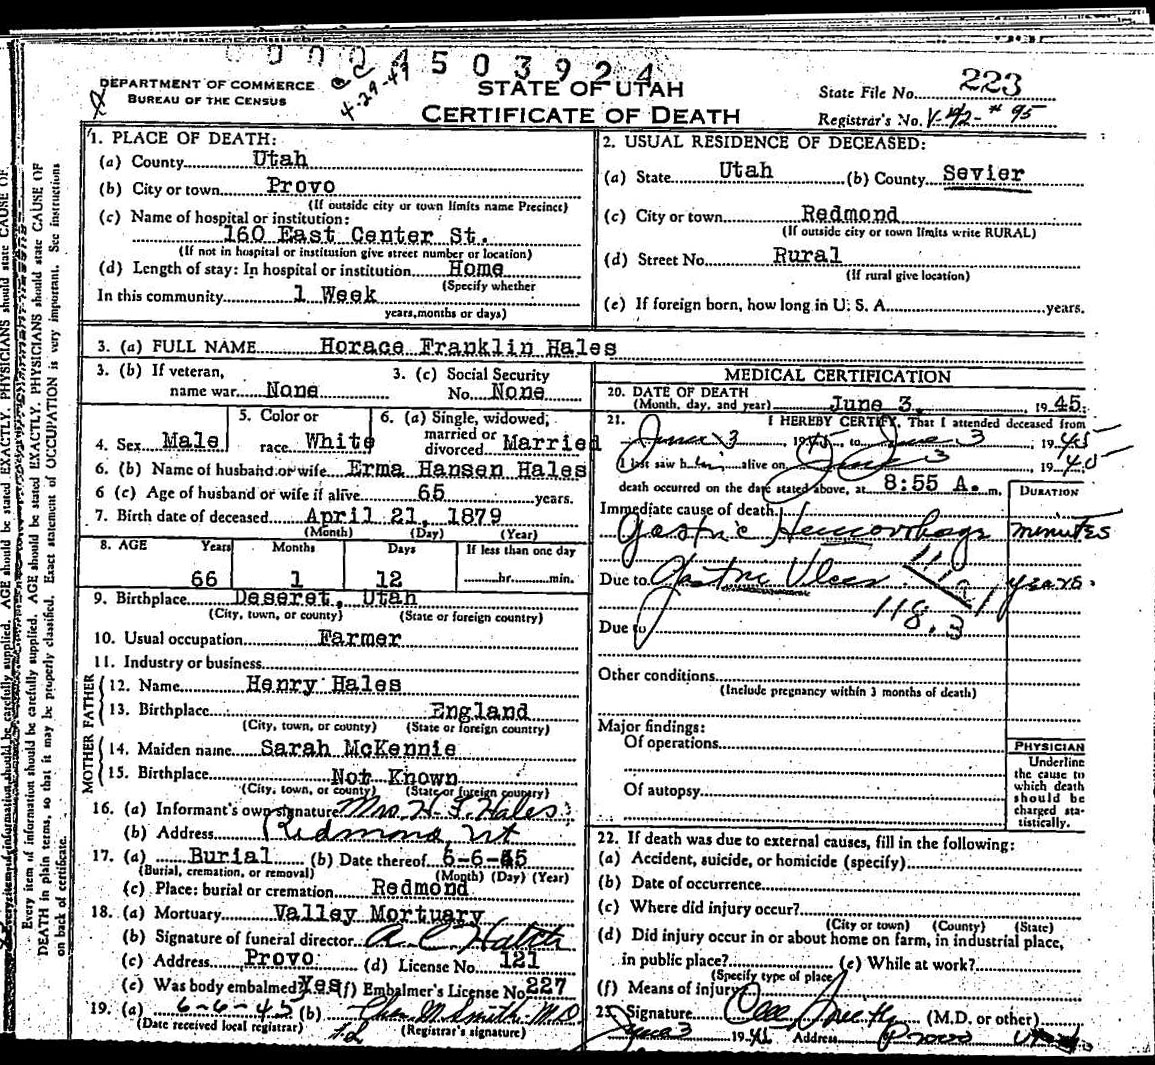 0 0 0 2 4 5 0 3 9 2 4
DEPARTMENT OF COMMERCE
BUREAU OF THE CENSUS
4-29-47
STATE OF UTAH
CERTIFICATE OF DEATH
State File No. 223
Registrar's No. V-142-#95
1. PLACE OF DEATH:
(a) County Utah
(b) City or town Provo
(If outside city or town limits name Precinct)
(c) Name of hospital or institution:
160 East Center St.
(If not in hospital or institution give street number or location)
(d) Length of stay: In hospital or institution Home
(Specify whether
In this community 1 Week
years, months or days)
2. USUAL RESIDENCE OF DECEASED:
(a) State Utah (b) County Sevier
(c) City or town Redmond
(If outside city or town limits write RURAL)
(d) Street No. Rural
(If rural give location)
(e) If foreign born, how long in U. S. A. years.
3. (a) FULL NAME Horace Franklin Hales
3. (b) If veteran,
name war None
3. (c) Social Security
No. None
4. Sex Male
5. Color or
race White
6. (a) Single, widowed,
married or
divorced Married
6. (b) Name of husband or wife Erma Hansen Hales
6 (c) Age of husband or wife if alive 65 years.
7. Birth date of deceased April 21, 1879
(Month) (Day) (Year)
8. AGE Years Months Days If less than one day
66 1 12 hr. min.
9. Birthplace Deseret, Utah
(City, town, or county) (State or foreign country)
10. Usual occupation Farmer
11. Industry or business
FATHER
12. Name Henry Hales
13. Birthplace England
(City, town, or county) (State or foreign country)
MOTHER
14. Maiden name Sarah McKennie
15. Birthplace Not Known
(City, town, or county) (State or foreign country)
16. (a) Informant's own signature Mrs. H. F. Hales
(b) Address Redmond, Ut
17. (a) Burial (b) Date thereof 6-6-45
(Burial, cremation, or removal) (Month) (Day) (Year)
(c) Place: burial or cremation Redmond
18. (a) Mortuary Valley Mortuary
(b) Signature of funeral director A C Hatch
(c) Address Provo (d) License No. 121
(e) Was body embalmed? Yes (f) Embalmer's License No. 227
19. (a) 6-6-45 (b) Chas M Smith M.D
(Date received local registrar) (Registrar's signature)
MEDICAL CERTIFICATION
20. DATE OF DEATH
(Month, day, and year) June 3, 1945.
21. I HEREBY CERTIFY, That I attended deceased from
June 3 1945, to June 3 1945
I last saw him alive on June 3 1945
death occurred on the date stated above, at 8:55 A. m.
DURATION
Immediate cause of death
Gastric Hemorrhage minutes
Due to Gastric Ulcer years.
118.3
Due to
Other conditions
(Include pregnancy within 3 months of death)
Major findings:
Of operations
Of autopsy
PHYSICIAN
Underline
the cause to
which death
should be
charged sta-
tistically.
22. If death was due to external causes, fill in the following:
(a) Accident, suicide, or homicide (specify)
(b) Date of occurrence
(c) Where did injury occur?
(City or town) (County) (State)
(d) Did injury occur in or about home on farm, in industrial place,
in public place? (e) While at work?
(Specify type of place)
(f) Means of injury
23. Signature Smith (M.D. or other)
June 3 19 Address Provo Utah
Every item of information should be carefully supplied. AGE should be stated EXACTLY. PHYSICIANS should state CAUSE OF
DEATH in plain terms, so that it may be properly classified. Exact statement of OCCUPATION is very important. See instructions
on back of certificate.